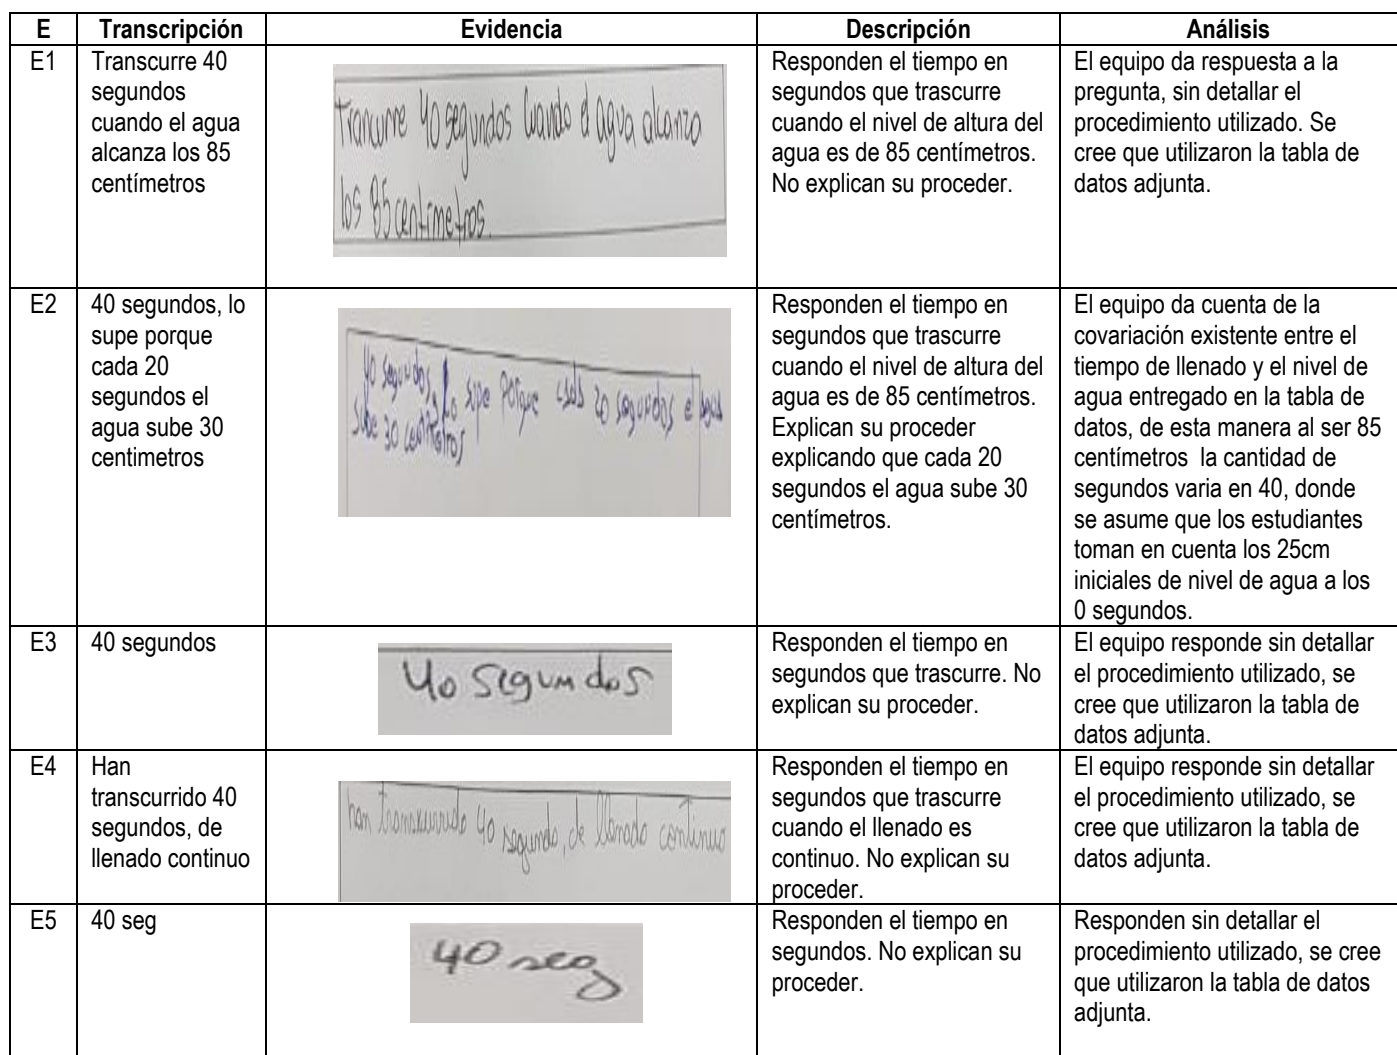 E Transcripción Evidencia Descripción Análisis
E1
Transcurre 40
segundos
cuando el agua
alcanza los 85
centímetros
Trancurre 40 segundos Cuando el agua alcanza
los 85 centimetros.
Responden el tiempo en
segundos que trascurre
cuando el nivel de altura del
agua es de 85 centímetros.
No explican su proceder.
El equipo da respuesta a la
pregunta, sin detallar el
procedimiento utilizado. Se
cree que utilizaron la tabla de
datos adjunta.
E2
40 segundos, lo
supe porque
cada 20
segundos el
agua sube 30
centimetros
40 segundos, lo supe porque cada 20 segundos el agua
sube 30 centimetros
Responden el tiempo en
segundos que trascurre
cuando el nivel de altura del
agua es de 85 centímetros.
Explican su proceder
explicando que cada 20
segundos el agua sube 30
centímetros.
El equipo da cuenta de la
covariación existente entre el
tiempo de llenado y el nivel de
agua entregado en la tabla de
datos, de esta manera al ser 85
centímetros la cantidad de
segundos varia en 40, donde
se asume que los estudiantes
toman en cuenta los 25cm
iniciales de nivel de agua a los
0 segundos.
E3
40 segundos
40 segundos
Responden el tiempo en
segundos que trascurre. No
explican su proceder.
El equipo responde sin detallar
el procedimiento utilizado, se
cree que utilizaron la tabla de
datos adjunta.
E4
Han
transcurrido 40
segundos, de
llenado continuo
han transkurrido 40 segundo, de llenado continuo
Responden el tiempo en
segundos que trascurre
cuando el llenado es
continuo. No explican su
proceder.
El equipo responde sin detallar
el procedimiento utilizado, se
cree que utilizaron la tabla de
datos adjunta.
E5
40 seg
40 seg
Responden el tiempo en
segundos. No explican su
proceder.
Responden sin detallar el
procedimiento utilizado, se cree
que utilizaron la tabla de datos
adjunta.